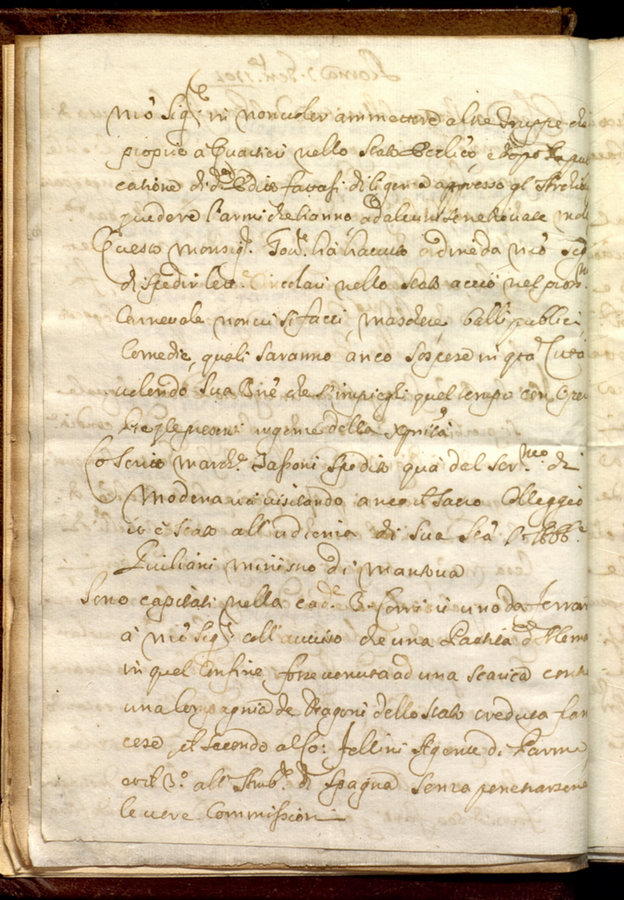 nrõ Sigre in non voler ammettere altre Truppe di
proprie à Quartieri nello Stato Ecclico, e dopo la pu
catione di dº Editto fattasi diligenza appresso gl'
quedere l'armi che hanno
Questo Monsigr Govre hà havuto ordine da nrõ Sigre
di spedir lettre Circolari nello Stato acciò nel pross.
Carnevale non vi si facci maschere, balli publici
Comedie, quali saranno anco sospese in qta Città
volendo Sua Bne che s'impieghi quel tempo con
le presenti urgenze della Xpnità
Co Scritto Marche Tassoni spedito quà dal Sermo di
Modena và visitando anco il Sacro Colleggio
è stato all'udienza di Sua Stà l'Abbe
Giuliani ministro di Mantova
Sono capitati nella cade 3 Corrieri uno da Ferrar
à nrõ Sigre coll'avviso che una Partita d'Alema
in quel Confine fosse venuta ad una scarica cont
una Compagnia de Dragoni dello Stato creduta fran
cese, il secondo al So: Fellini Agente di Parma
et il 3º all'Ambre di Spagna senza penetrarsene
le vere Commissioni